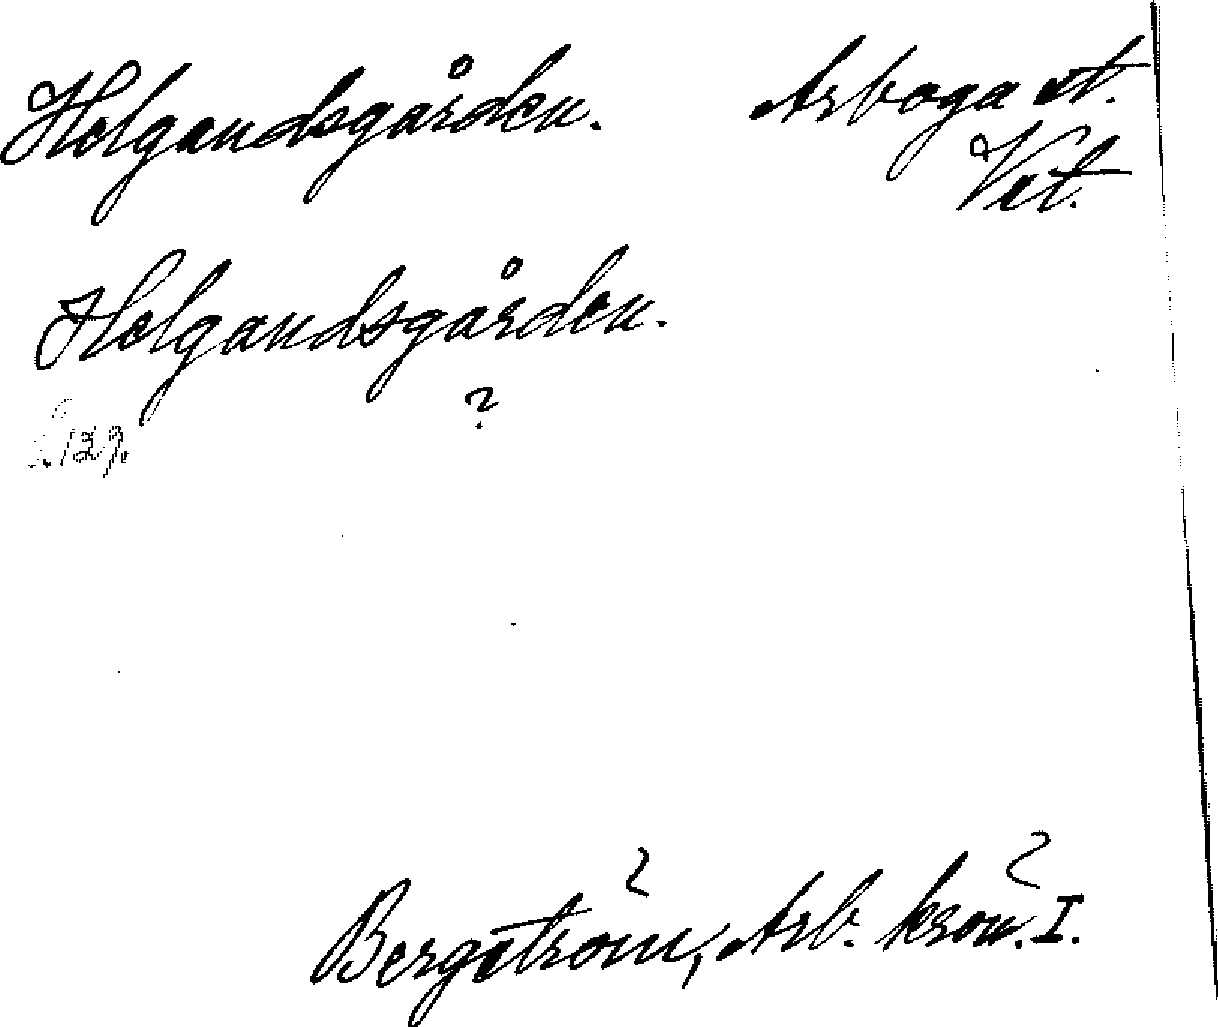 Helgandsgården. Arboga st.
Vst.
Helgandsgården.
?
129.
Bergström, Arb. krön. I.